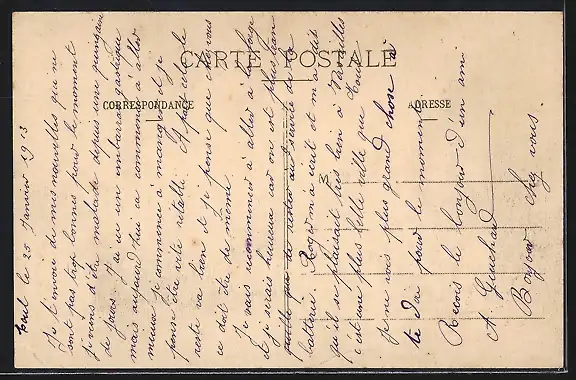 CARTE POSTALE
CORRESPONDANCE
ADRESSE
Toul le 25 Janvier 1913
Je t'envoie de mes nouvelles qui ne
sont pas trop bonnes pour le moment
je viens d'être malade depuis une quinzaine
de jours j'ai eu un embarras gastrique
mais aujourd'hui ca commence à aller
mieux je commence à manger et je
pense être vite rétabli. A part cela le
reste va bien et je pense que chez vous
ce doit être de même.
Je vais recommencer à aller à la forge
et je serais heureux car on est plus
quille que de rester au service de la
batterie. Roger m'a écrit et m'a dit
qu'il se plaisait très bien à Versailles
c'est une plus belle ville que Toul.
je ne vois plus grand chose à
te dire pour le moment
Recois le bonjour d'un ami
A.
Bonjour chez vous.